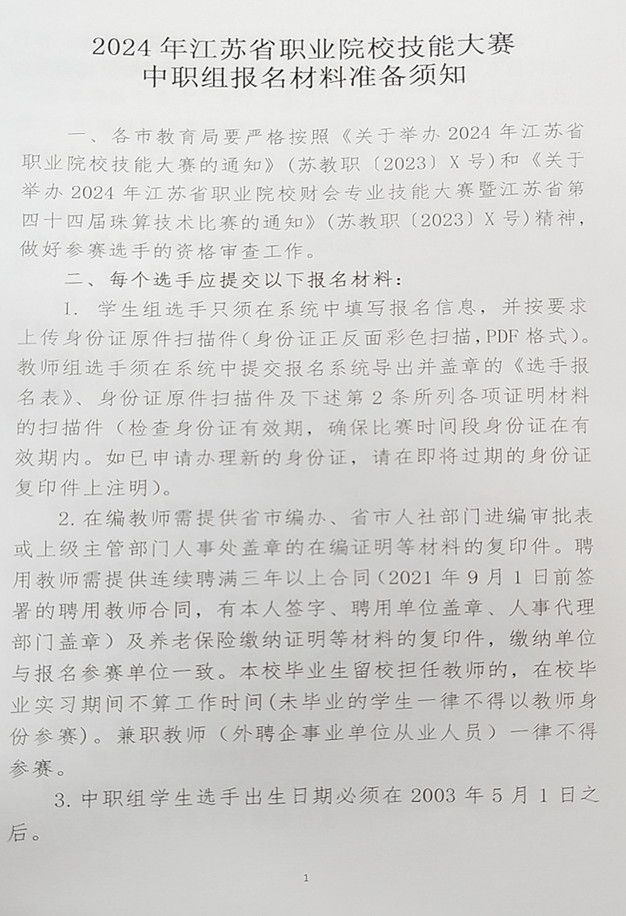 2024 年江苏省职业院校技能大赛
中职组报名材料准备须知
一、各市教育局要严格按照《关于举办 2024 年江苏省
职业院校技能大赛的通知》(苏教职〔2023〕X 号)和《关于
举办 2024 年江苏省职业院校财会专业技能大赛暨江苏省第
四十四届珠算技术比赛的通知》(苏教职〔2023〕X 号)精神，
做好参赛选手的资格审查工作。
二、每个选手应提交以下报名材料：
1. 学生组选手只须在系统中填写报名信息，并按要求
上传身份证原件扫描件(身份证正反面彩色扫描,PDF 格式)。
教师组选手须在系统中提交报名系统导出并盖章的《选手报
名表》、身份证原件扫描件及下述第 2 条所列各项证明材料
的扫描件（检查身份证有效期，确保比赛时间段身份证在有
效期内。如已申请办理新的身份证，请在即将过期的身份证
复印件上注明)。
2. 在编教师需提供省市编办、省市人社部门进编审批表
或上级主管部门人事处盖章的在编证明等材料的复印件。聘
用教师需提供连续聘满三年以上合同（2021 年 9 月 1 日前签
署的聘用教师合同，有本人签字、聘用单位盖章、人事代理
部门盖章）及养老保险缴纳证明等材料的复印件，缴纳单位
与报名参赛单位一致。本校毕业生留校担任教师的，在校毕
业实习期间不算工作时间(未毕业的学生一律不得以教师身
份参赛)。兼职教师（外聘企事业单位从业人员）一律不得
参赛。
3. 中职组学生选手出生日期必须在 2003 年 5 月 1 日之
后。
1